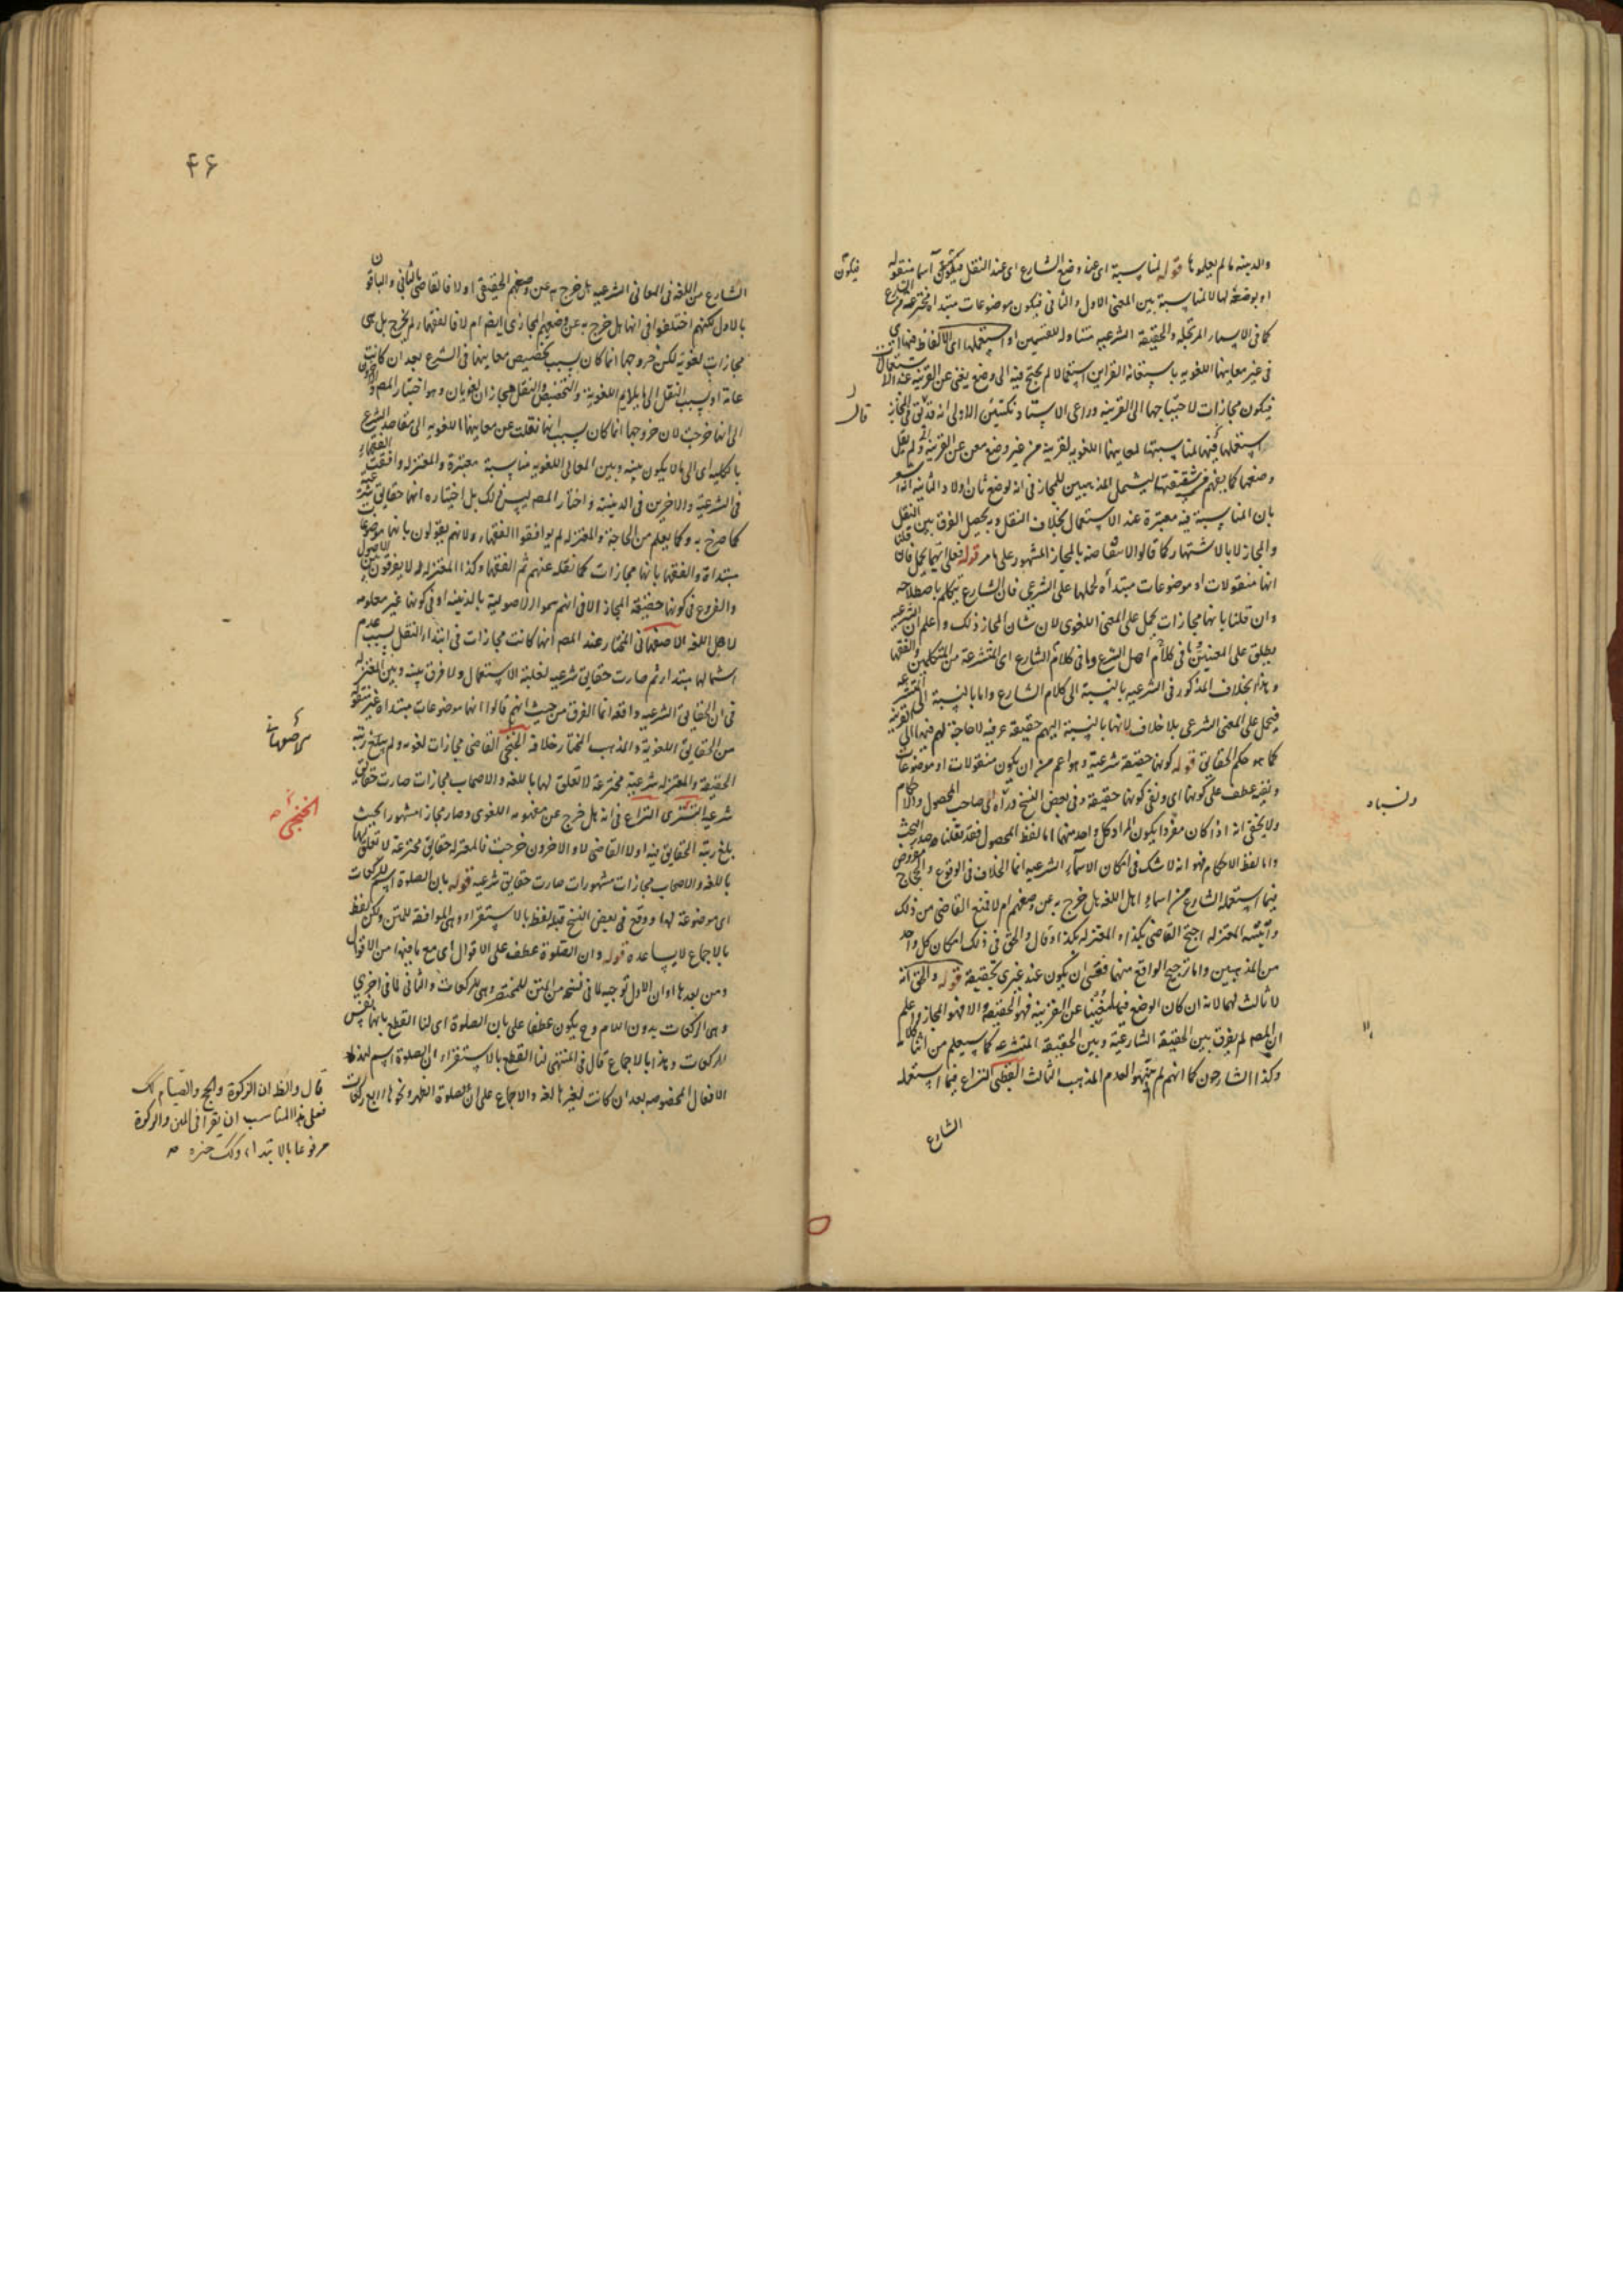 والدينيه ما لم يعلموها قوله لمناسبة اى عند وضع الشارع اى عند النقل فيكون اسما منقوله
او بوضعه لها لا لمناسبة بين المعنى الاول والثانى فيكون موضوعات مبتداه مخترعة
كما فى الاسماء المرتجله والحقيقة الشرعيه متناوله للقسمين او استعملها اى الالفاظ فيها اى
فى غير معانيها اللغويه باستعانة القراين استعمالا لم يحتج فيه الى وضع يغنى عن القرينة عند الاستعمال
فيكون مجازات لاحتياجها الى القرينه وراعى الاستاد نكتتين الاولى انه قد
استعملها فيها لمناسبتها لمعانيها اللغويه لقرينة من غير وضع مغن عن القرينه ولم يقل
وضعها كما يفهم من ليشمل المذهبين للمجاز فى انه لوضع ثان اولا والثانيه
بان المناسبة فيه معتبرة عند الاستعمال بخلاف النقل وبه يحصل الفرق بين النقل
والمجاز لا بالاشتهار كما قالوا بالمجاز المشهور على ما مر قوله فعلى ايهما يحمل فان قلنا
انها منقولات او موضوعات مبتدأه لحملها على الشرعى فان الشارع يتكلم باصطلاحه
وان قلنا بانها مجازات يحمل على المعنى اللغوى لان شان المجاز ذلك واعلم ان الشرعيه
يطلق على المعنيين ما فى كلام اهل الشرع وما فى كلام الشارع اى المتشرعة من المتكلمين والفقها
وهذا بخلاف المذكور فى الشرعيه بالنسبة الى كلام الشارع واما بالنسبة الى المتشرعه
فيحمل على المعنى الشرعى بلا خلاف لانها بالنسبة اليهم حقيقة عرفيه لا حاجة لهم فيها الى القرينه
كما هو حكم الحقايق قوله كونها حقيقة شرعية وهو اعم من ان يكون منقولات او موضوعات
ونفيه عطف على كونها اى ونفى كونها حقيقة وفى بعض النسخ الى صاحب المحصول والاحكام
ولا يخفى انه اذا كان مفردا يكون المراد كل واحد منهما اما لفظ المحصول فقد نقلناه صدر البحث
واما لفظ الاحكام فهو انه لا شك فى امكان الاسماء الشرعيه انما الخلاف فى الوقوع والحجاج مفروض
فيما استعمله الشارع من اسماء اهل اللغه هل خرج به عن وضعهم ام لا فمنع القاضى من ذلك
واثبته المعتزله احتج القاضى بكذا والمعتزله بكذا وقال والحق فى ذلك امكان كل واحد
من المذهبين واما ترجيح الواقع منهما فعسى ان يكون عند غيرى تحقيقه قوله والحق انه
لا ثالث لهما لانه ان كان الوضع فيها مغنيا عن القرينة فهو الحقيقة والا فهو المجاز واعلم
ان المصه لم يفرق بين الحقيقة الشارعية وبين الحقيقة المتشرعه كما سيعلم من اثنا كلامه
وكذا الشارحون كما انهم لم يتنبهوا لعدم المذهب الثالث النزاع فيما استعمله
الشارع
فيكون
قال
ونسباه
٤٦
الشارع من اللغة فى المعانى الشرعيه هل خرج به عن وضعهم الحقيقى اولا فالقاضى بالثانى والباقون
بالاول لكنهم اختلفوا فى انها هل خرج به عن وضعهم المجازى ايضا ام لا فالفقهاء لم يخرج بل هى
مجازات لغويه لكن خروجها انما كان بسبب تخصيص معانيها فى الشرع بعد ان كانت
عامة او بسبب النقل الى ما يلايم اللغوية والتخصيص والنقل مجازان لغويان وهو اختيار المصه
الى انها خرجت لان خروجها انما كان بسبب انها نقلت عن معانيها اللغويه الى مقاصد الشرع
بالكليه اى الى ما لا يكون بينه وبين المعانى اللغويه مناسبة معتبرة والمعتزله وافقت الفقهاء
فى الشرعية والاخرين فى الدينية واختار المصه ليس ذلك بل اختياره انها حقايق شرعية
كما صرح به وكما يعلم من الحاجة والمعتزله لم يوافقوا الفقهاء ولانهم يقولون بانها موضوعات
مبتداة والفقها بانها مجازات كما نقله عنهم ثم الفقها وكذا المعتزله لا يفرقون بين الاصول
والفروع فى كونها حقيقة المجاز الا فى انهم سموا الاصولية بالدينيه او فى كونها غير معلومه
لاهل اللغه الاصفهانى المختار عند المصه انها كانت مجازات فى ابتداء النقل بسبب عدم
اشتمالها مبتداء ثم صارت حقايق شرعيه لغلبة الاستعمال ولا فرق بينه وبين المعتزله
فى ان الحقايق الشرعيه واقعه انما الفرق من حيث انهم قالوا انها موضوعات مبتداه غير منتقله
من الحقايق اللغوية والمذهب المختار خلافه الخنجى القاضى مجازات لغويه ولم يبلغ رتبة
الحقيقة والمعتزله شرعيه مخترعة لا تعلق لها باللغه والاصحاب مجازات صارت حقايق
شرعيه التسترى النزاع فى انه هل خرج عن مفهومه اللغوى وصار مجازا مشهورا بحيث
بلغ رتبة الحقايق فيه اولا القاضى لا والاخرون خرجت فالمعتزله حقايق مخترعة لا تعلق لها
باللغه والاصحاب مجازات مشهورات صارت حقايق شرعيه قوله بان الصلوة اسم للركعات
اى موضوعة لها ووقع فى بعض النسخ قبله لفظ بالاستقراء وهى الموافقة للمتن ولكن لفظ
بالاجماع لا يساعده قوله وان الصلوة عطف على الاقوال اى مع ما فيها من الاقوال
ومن بعدها اوان الاول توجيه لما فى نسخه من المتن للمختصر وهى للركعات والثانى لما فى اخرى
وهى الركعات بدون اللام وح يكون عطفا على بان الصلوة اى لنا القطع بانها نفس
الركعات وهذا بالاجماع قال فى المنتهى لنا القطع بالاستقراء ان الصلوة اسم لهذه
الافعال المخصوصه بعد ان كانت لغيرها لغة والاجماع على ان صلوة الظهر ونحوها اربع ركعات
الاصفهانى
الخنجى
قال والظ ان الزكوة والحج والصيام كك
فعلى هذا المناسب ان يقرا فى المتن والزكوة
مرفوعا بالابتداء وكك خبره